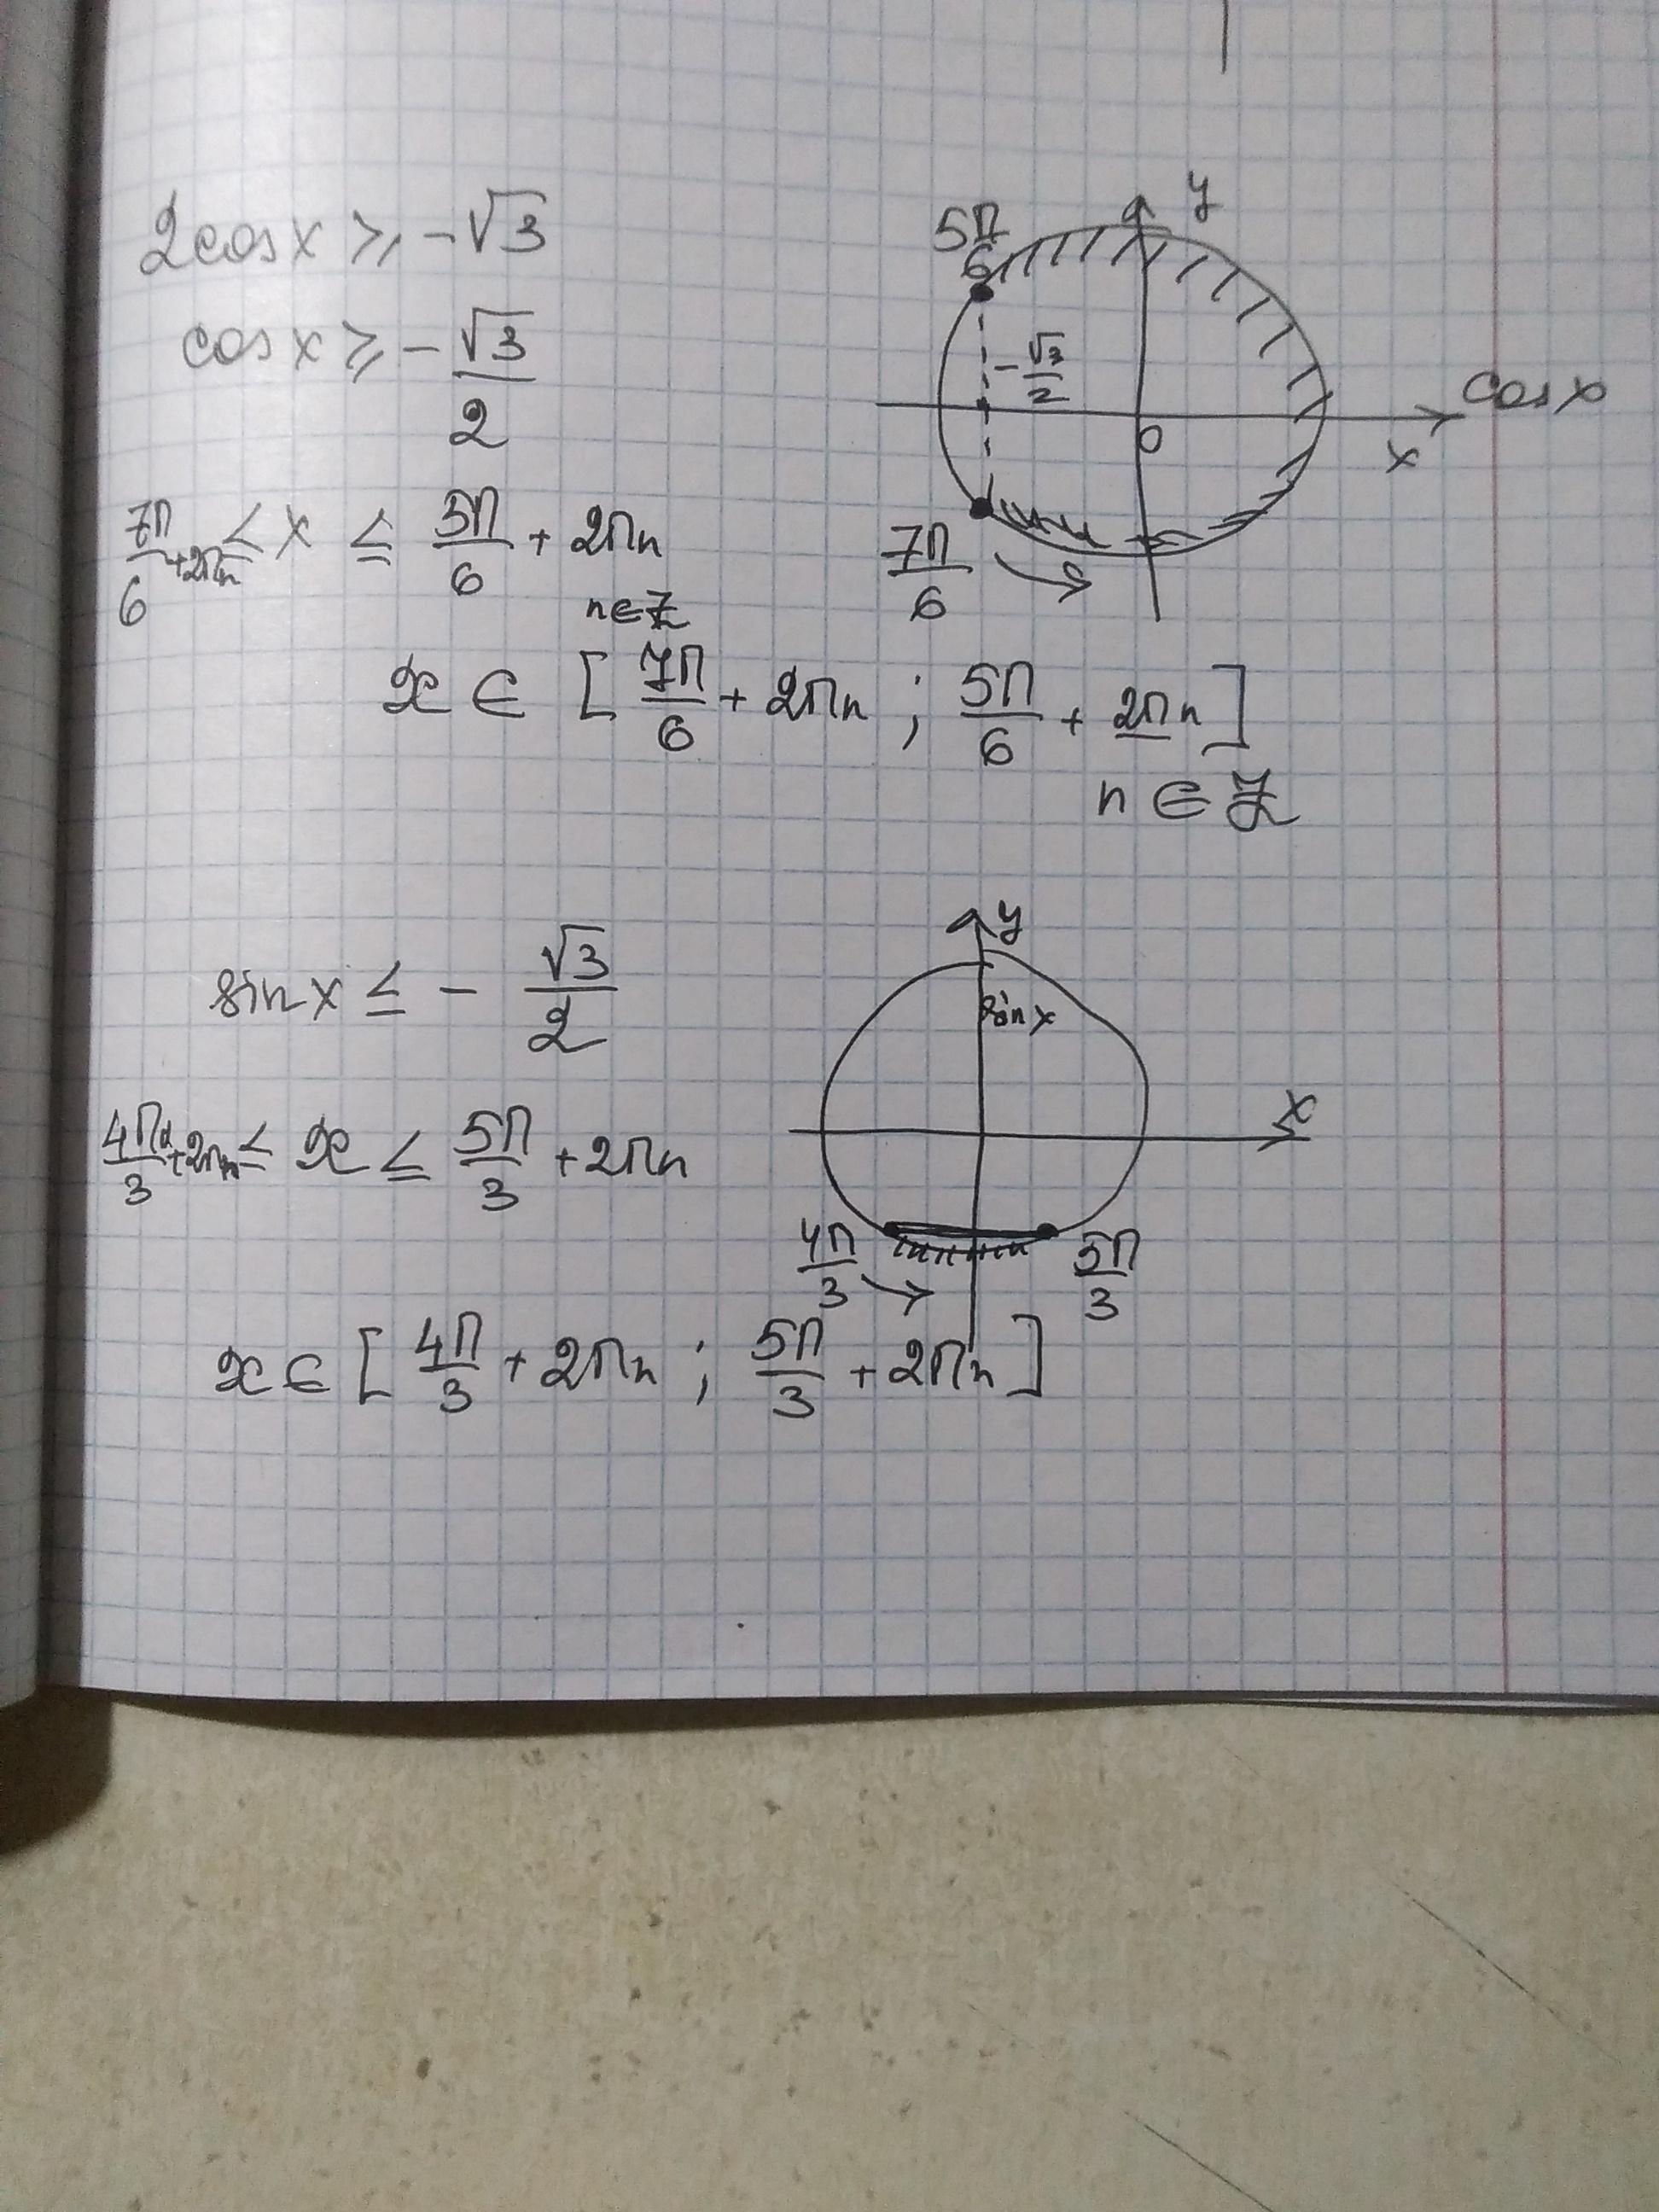 2cosx ⩾ -√3
cosx ⩾ -√3/2
7П/6 +2Пn ≤ x ≤ 5П/6 + 2Пn
n∈Z
x ∈ [7П/6 + 2Пn ; 5П/6 + 2Пn]
n ∈ Z
y
5П/6
-√3/2
cosx
0
x
7П/6
sinx ≤ -√3/2
4П/3 +2Пn ≤ x ≤ 5П/3 +2Пn
x∈[4П/3 + 2Пn ; 5П/3 + 2Пn]
y
sinx
x
4П/3
5П/3